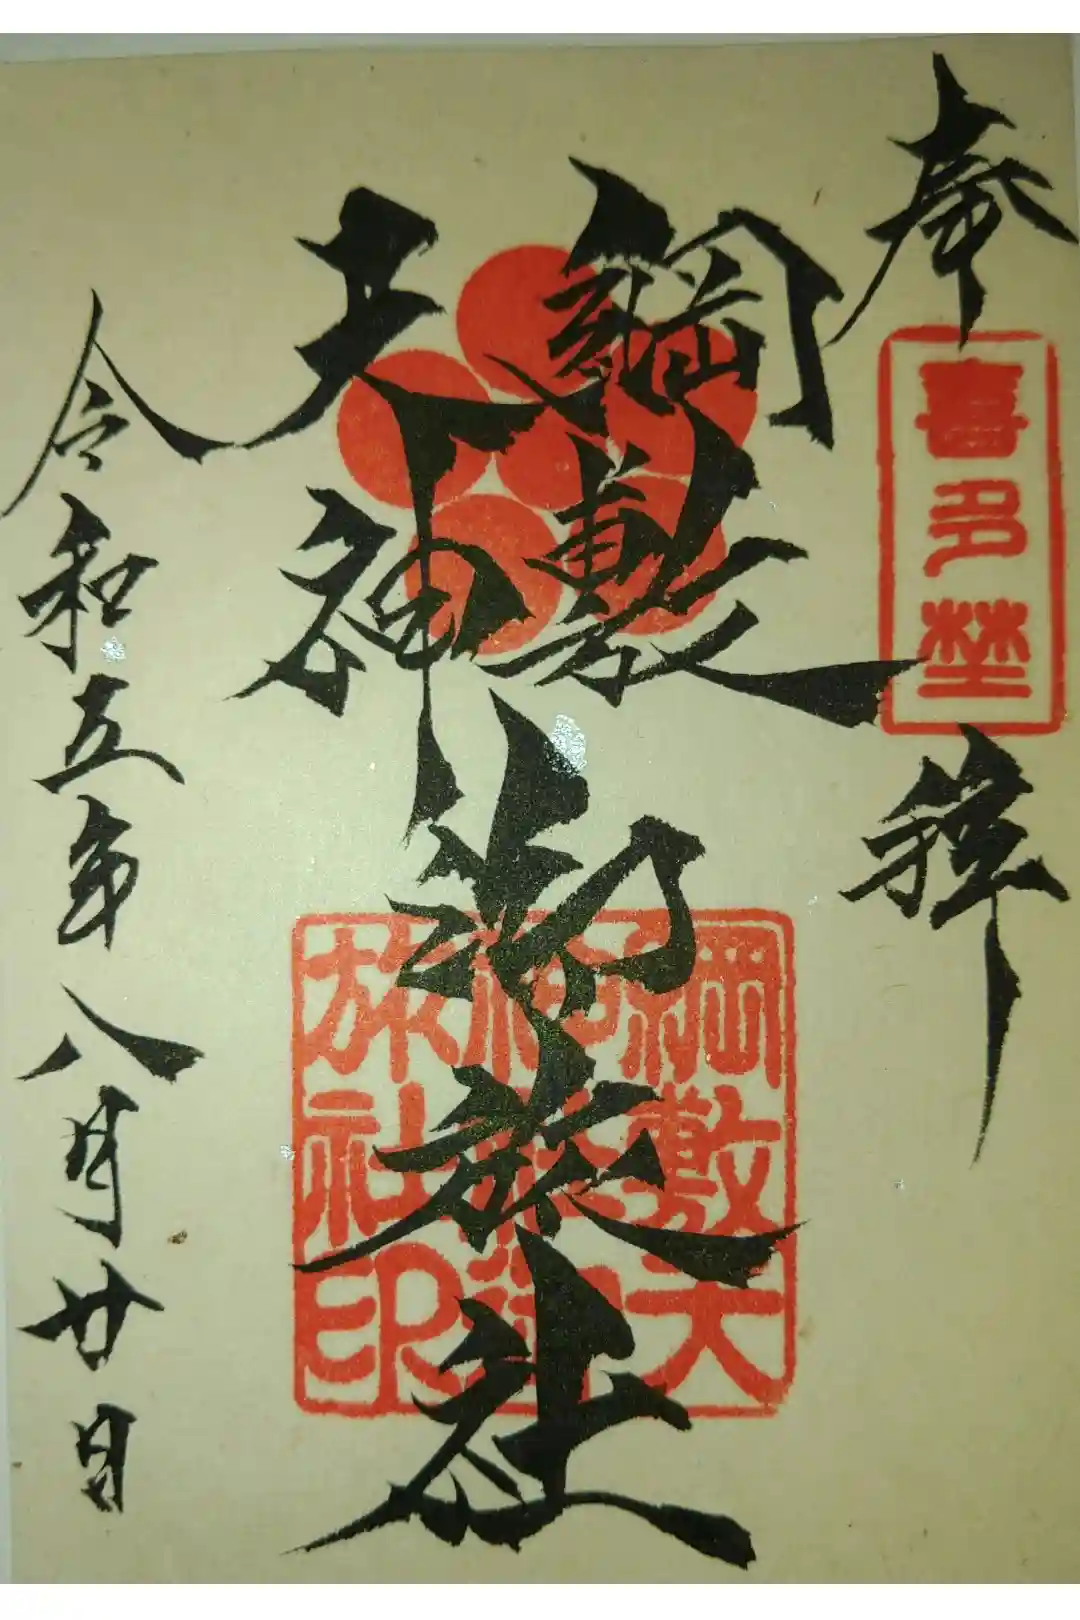 奉拝
喜多埜
綱敷
天神
御旅社
綱敷天
神社御
旅社印
令和五年八月廿日